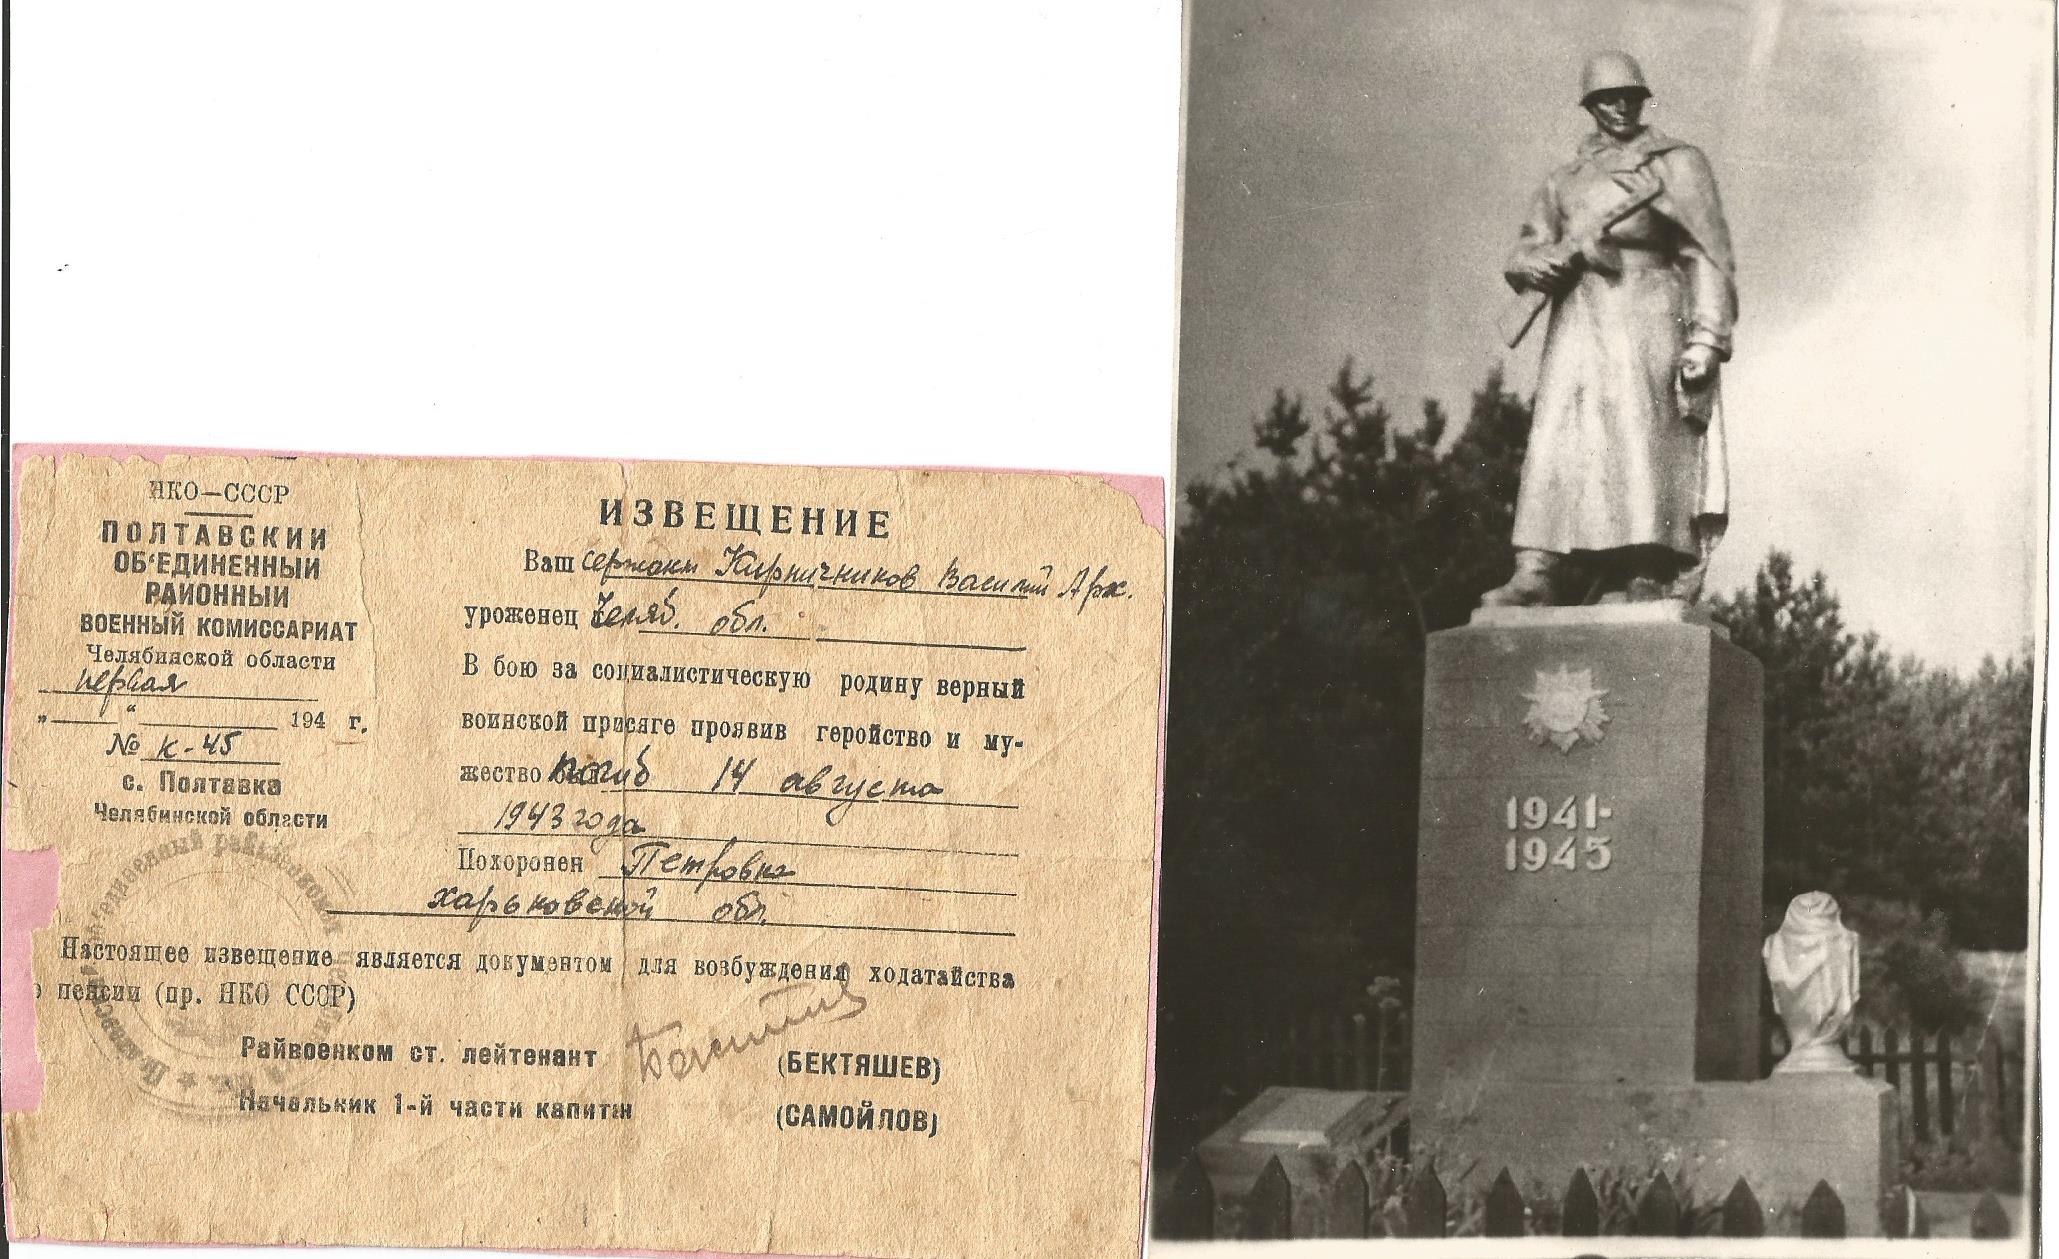 НКО—СССР
ПОЛТАВСКИЙ
ОБ'ЕДИНЕННЫЙ
РАЙОННЫЙ
ВОЕННЫЙ КОМИССАРИАТ
Челябинской области
первая
„ “ 194 г.
№ К-45
с. Полтавка
Челябинской области
ИЗВЕЩЕНИЕ
Ваш сержант Кирпичников Василий Арх.
уроженец Челяб. обл.
В бою за социалистическую родину верный
воинской присяге проявив геройство и му-
жество погиб 14 августа
1943 года
Похоронен Петровка
Харьковской обл.
Настоящее извещение является документом для возбуждения ходатайства
о пенсии (пр. НКО СССР)
Райвоенком ст. лейтенант (БЕКТЯШЕВ)
Начальник 1-й части капитан (САМОЙЛОВ)
1941-
1945